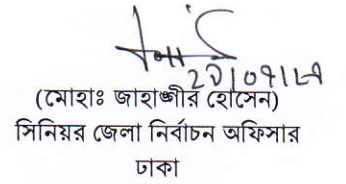 (মোহাঃ জাহাঙ্গীর হোসেন)
সিনিয়র জেলা নির্বাচন অফিসার
ঢাকা